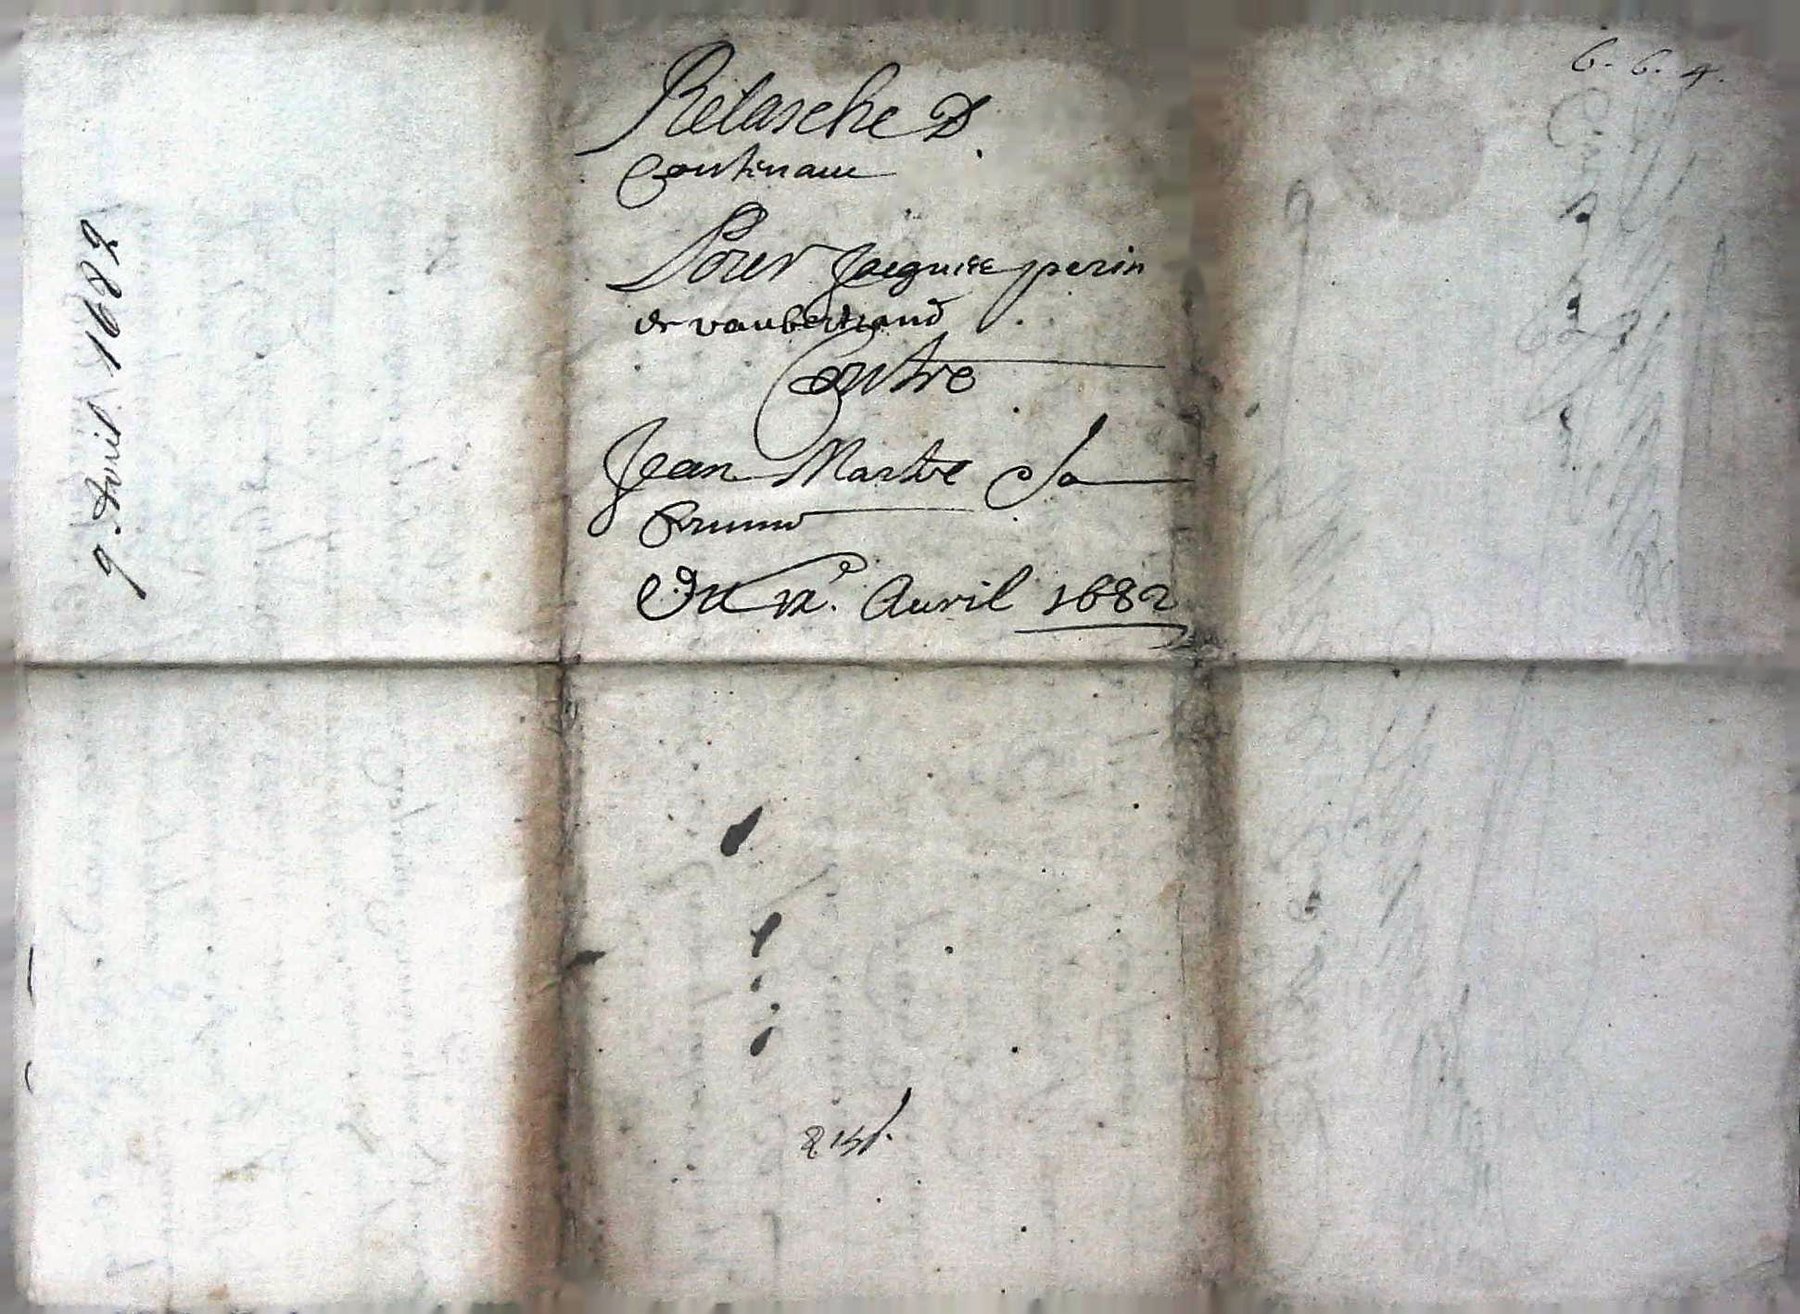 9. Avril 1682
Relasche D
Contenant
Pour Jacquise perin
de vaubertrand
Contre
Jean Martre Sa
femme
Du 9e. Auvril 1682
6. 6. 4.